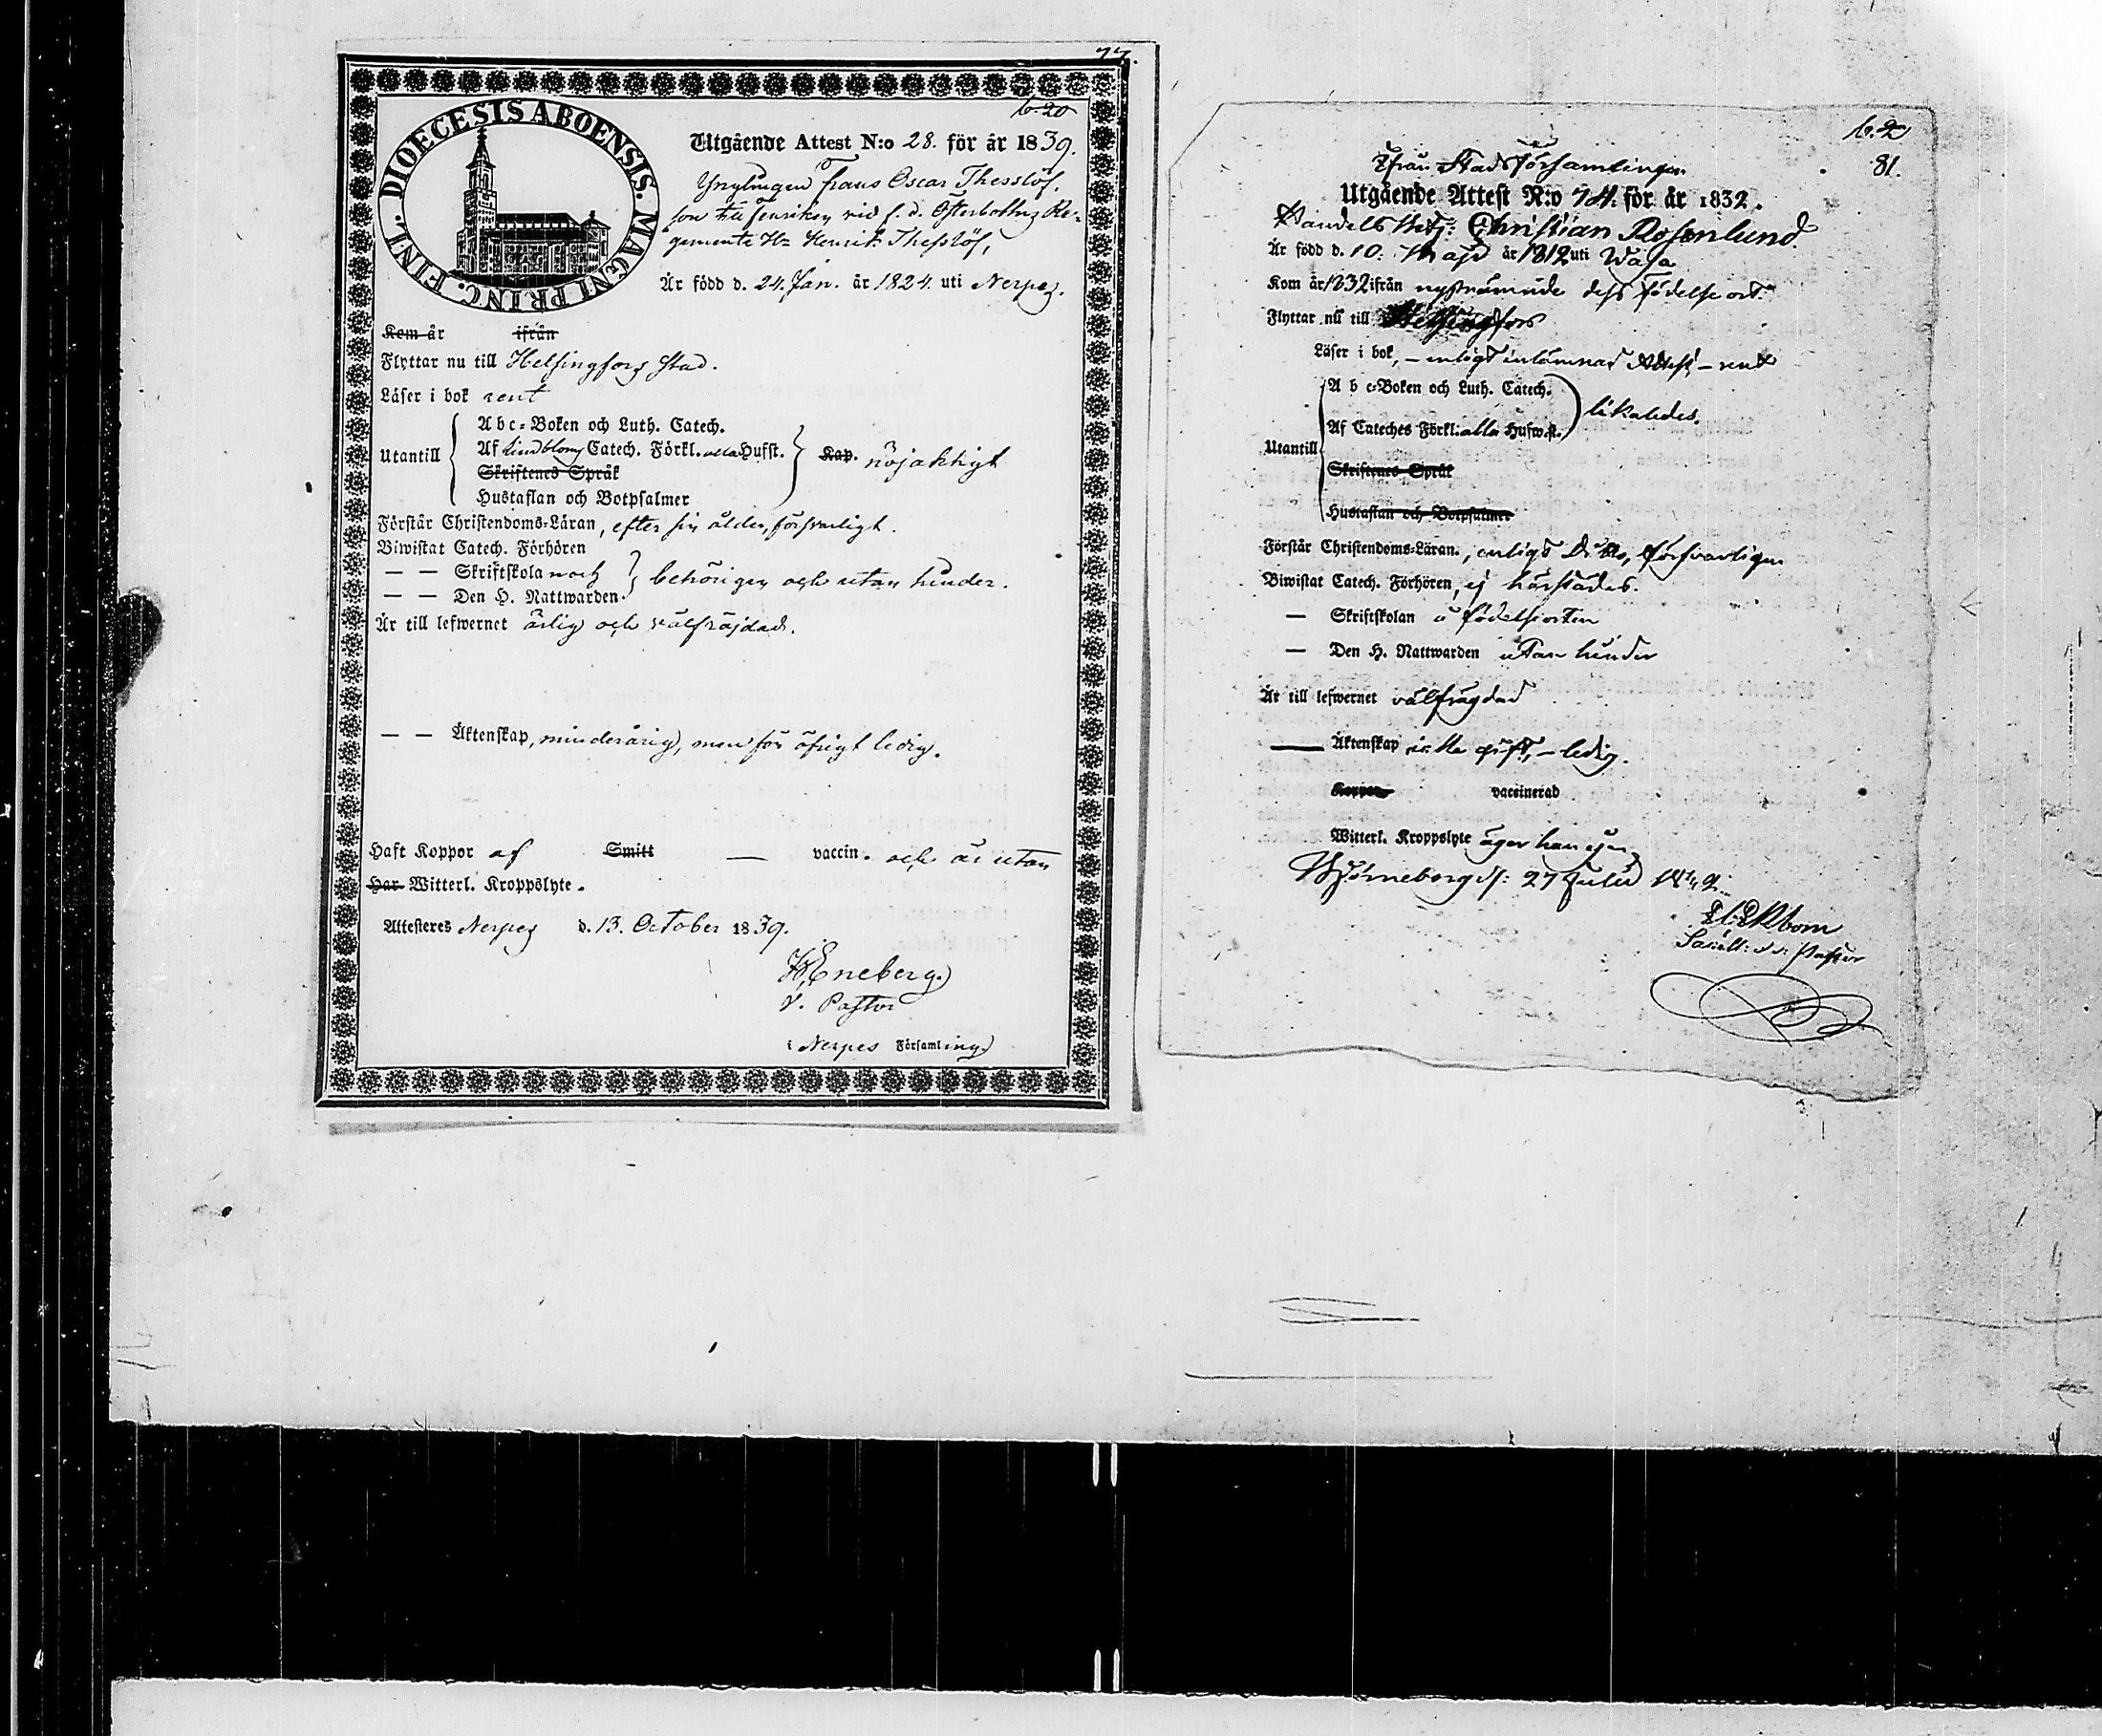 77.
b. 20
DIOECESIS ABOENSIS. MAGNI PRINC. FINL.
Utgående Attest N:o 28. för år 1839.
Ynglingen Frans Oscar Thesslöf,
son till Fenriken vid f. d. Österbottns Re-
gemente Hr Henrik Thesslöf,
Är född d. 24. Jan. år 1824. uti Nerpes.
Kom år ifrån
Flyttar nu till Helsingfors stad.
Läser i bok rent
Utantill
Abc-Boken och Luth. Catech.
Af Lindbloms Catech. Förkl. alla Hufst.
Skriftenes Språk
Hustaflan och Botpsalmer
Kap. nöjaktigt
Förstår Christendoms-Läran, efter sin ålder, försvarligt.
Biwistat Catech. Förhören
— — Skriftskola och
— — Den H. Nattwarden
behörigen och utan hinder.
Är till lefwernet ärlig och välfräjdad.
— — Äktenskap, minderårig, men för öfrigt ledig.
Haft Koppor af Smitt — vaccin. och är utan
Har Witterl. Kroppslyte.
Attesteres Nerpes d. 13. October 1839.
Eneberg
V. Pastor
i Nerpes Församling
b. 20
81.
Ifrån Stadsförsamlingen
Utgående Attest N:o 74. för år 1832.
Handels Betj: Christian Rosenlund.
Är född d. 10. Maji år 1812 uti Wasa
Kom år 1832 ifrån nyssnämnde dess födelse ort.
Flyttar nu till Helsingfors
Läser i bok, – enligt inlämnad Attest, – rent
Utantill
A b c-Boken och Luth. Catech.
Af Cateches Förkl: alla Hufwst.
likaledes.
Skriftenes Språk
Hustaflan och Botpsalmer
Förstår Christendoms-Läran, enligt D:o, försvarligen
Biwistat Catech. Förhören, ej härstädes.
— Skriftskolan å födelseorten
— Den H. Nattwarden utan hinder
Är till lefwernet välfrägdad
— Äktenskap icke gift, – ledig.
Koppor vaccinerad
Witterl. Kroppslyte äger han ej
Björneborg d: 27 Julii 1832.
Ekbom
Pastor